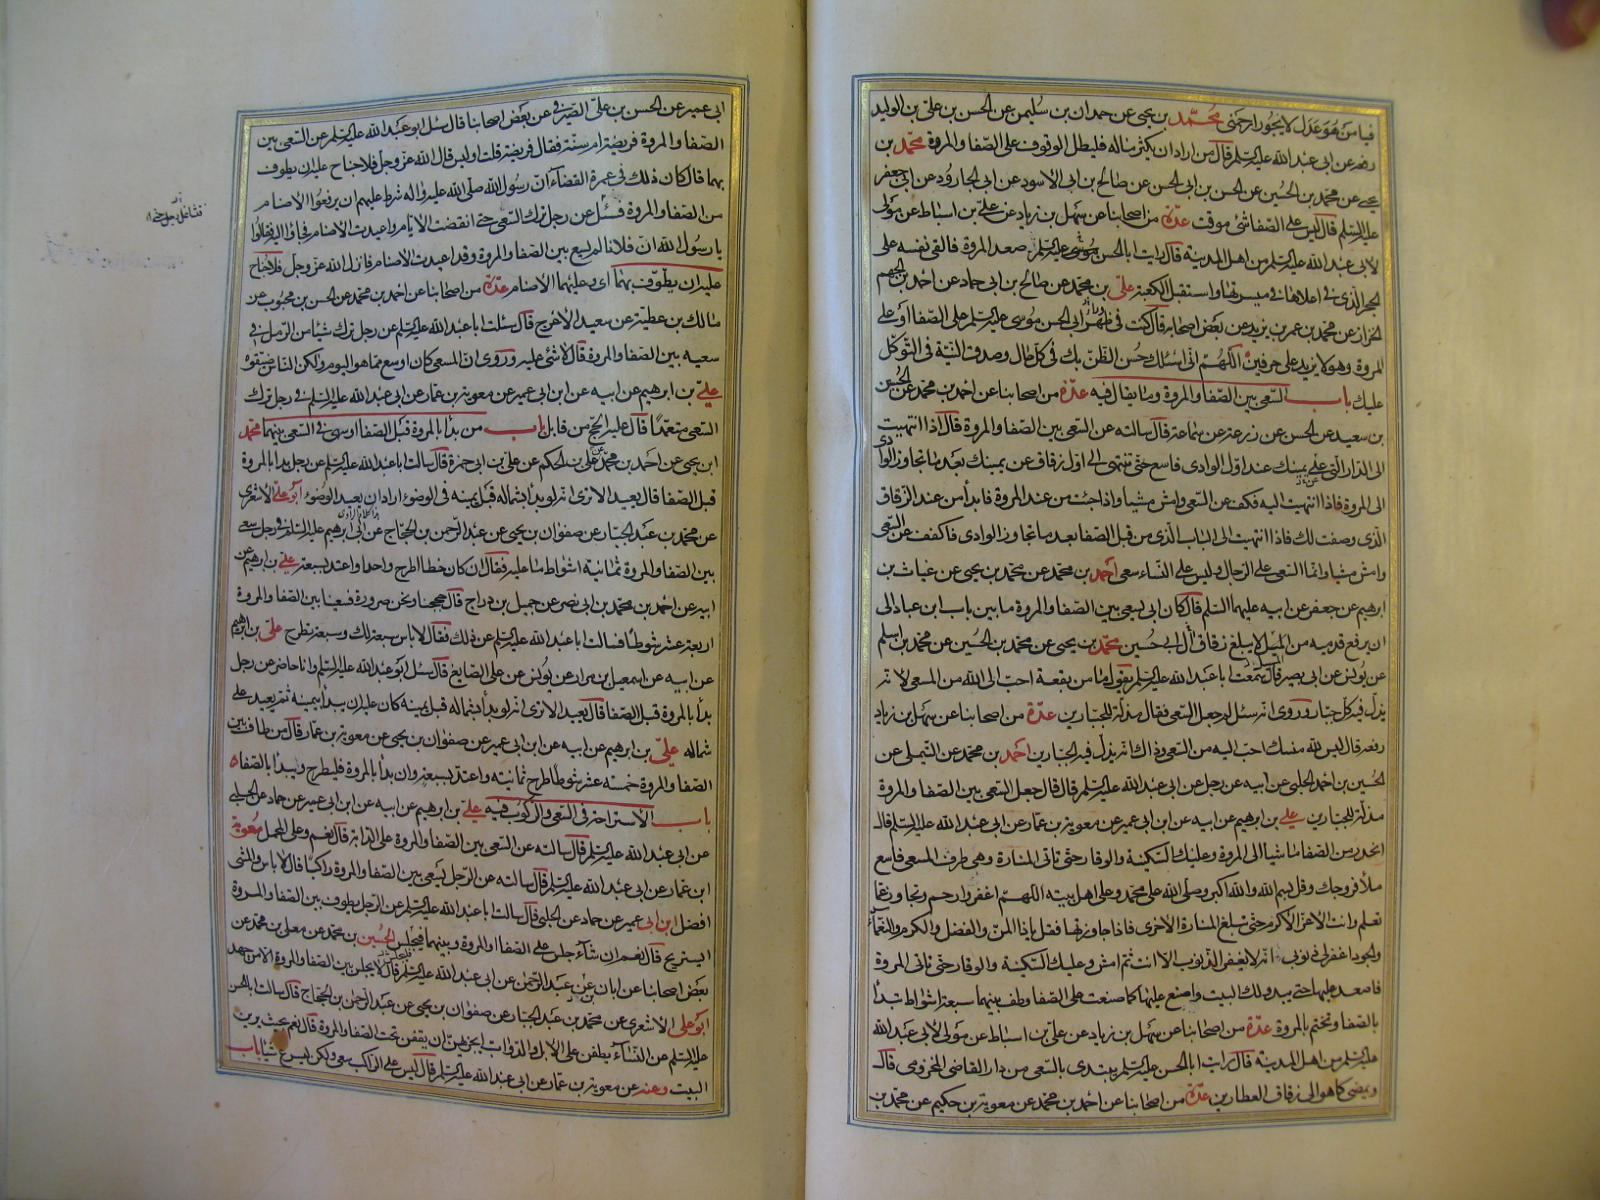 فياس هو عدل لا يجور ارحمنى محمد بن يحيى عن حمدان بن سليمن عن الحسن بن على بن الوليد
رفعه عن ابى عبد الله عليه السلم قال من اراد ان يكثر ماله فليطل الوقوف على الصفا والمروة محمد بن
يحيى عن محمد بن الحسين عن الحسن بن ابى الحسن عن صالح بن ابى الاسود عن ابى الجارود عن ابى جعفر
عليه السلم قال ليس على الصفا شئ موقت عدة من اصحابنا عن سهل بن زياد عن على بن اسباط عن مولى
لابى عبد الله عليه السلم من اهل المدينة قال رايت ابا الحسن موسى عليه السلم صعد المروة فالقى نفسه على
الحجر الذى فى اعلاها فى ميسرتها واستقبل الكعبة على بن محمد عن صالح بن ابى حماد عن احمد بن الجهم
الخزاز عن محمد بن عمر بن يزيد عن بعض اصحابه قال كنت فى ظهر ابى الحسن موسى عليه السلم على الصفا او على
المروة وهو لا يزيد على حرفين اللهم انى اسئلك حسن الظن بك فى كل حال وصدق النية فى التوكل
عليك باب السعى بين الصفا والمروة وما يقال فيه عدة من اصحابنا عن احمد بن محمد عن الحسين
بن سعيد عن الحسن عن زرعة عن سماعة قال سالته عن السعى بين الصفا والمروة قال اذا انتهيت
الى الدار التى على يمينك عند اول الوادى فاسع حتى تنتهى الى اول زقاق عن يمينك بعد ما تجاوز الوادى
الى المروة فاذا انتهيت اليه فكف عن السعى وامش مشيا واذا جئت من عند المروة فابدأ من عند الزقاق
الذى وصفت لك فاذا انتهيت الى الباب الذى من قبل الصفا بعد ما تجاوز الوادى فاكفف عن السعى
وامش مشيا وانما السعى على الرجال وليس على النساء سعى احمد بن محمد عن محمد بن يحيى عن غياث بن
ابرهيم عن جعفر عن ابيه عليهما السلم قال كان ابى يسعى بين الصفا والمروة ما بين باب ابن عباد الى
ان يرفع قدميه من الميل لا يبلغ زقاق آل ابى حسين محمد بن يحيى عن محمد بن الحسين عن محمد بن اسلم
عن يونس عن ابى بصير قال سمعت ابا عبد الله عليه السلم يقول ما من بقعة احب الى الله من المسعى لانه
يذل فيه كل جبار وروى انه سئل لم جعل السعى فقال مذلة للجبارين عدة من اصحابنا عن سهل بن زياد
رفعه قال ليس لله منسك احب اليه من السعى وذاك انه يذل فيه الجبارين احمد بن محمد عن التيملى عن
الحسين بن احمد الحلبى عن ابيه عن رجل عن ابى عبد الله عليه السلم قال قال جعل السعى بين الصفا والمروة
مذلة للجبارين على بن ابرهيم عن ابيه عن ابن ابى عمير عن معوية بن عمار عن ابى عبد الله عليه السلم قال
انحدر من الصفا ماشيا الى المروة وعليك السكينة والوقار حتى تاتى المنارة وهى طرف المسعى فاسع
ملأ فروجك وقل بسم الله والله اكبر وصلى الله على محمد وعلى اهل بيته اللهم اغفر وارحم وتجاوز عما
تعلم وانت الاعز الاكرم حتى تبلغ المنارة الاخرى فاذا جاوزتها فقل يا ذا المن والفضل والكرم والنعماء
والجود اغفر لى ذنوبى انه لا يغفر الذنوب الا انت ثم امش وعليك السكينة والوقار حتى تاتى المروة
فاصعد عليها حتى يبدو لك البيت واصنع عليها كما صنعت على الصفا وطف بينهما سبعة اشواط تبدأ
بالصفا وتختم بالمروة عدة من اصحابنا عن سهل بن زياد عن على بن اسباط عن مولى لابى عبد الله
عليه السلم من اهل المدينة قال رايت ابا الحسن عليه السلم يبتدى بالسعى من دار القاضى المخزومى قال
ويمضى كما هو الى زقاق العطارين عدة من اصحابنا عن احمد بن محمد عن معوية بن حكيم عن محمد بن
ابى عمير عن الحسن بن على الصيرفى عن بعض اصحابنا قال سئل ابو عبد الله عليه السلم عن السعى بين
الصفا والمروة فريضة ام سنة فقال فريضة قلت اوليس قال الله عز وجل فلا جناح عليه ان يطوف
بهما قال كان ذلك فى عمرة القضاء ان رسول الله صلى الله عليه واله شرط عليهم ان يرفعوا الاصنام
من الصفا والمروة فسئل عن رجل ترك السعى حتى انقضت الايام واعيدت الاصنام فجاؤا اليه فقالوا
يا رسول الله ان فلانا لم يسع بين الصفا والمروة وقد اعيدت الاصنام فانزل الله عز وجل فلا جناح
عليه ان يطوف بهما اى وعليهما الاصنام عدة من اصحابنا عن احمد بن محمد عن الحسن بن محبوب عن
مالك بن عطية عن سعيد الاعرج قال سئلت ابا عبد الله عليه السلم عن رجل ترك شيئا من الرمل فى
سعيه بين الصفا والمروة قال لا شئ عليه وروى ان المسعى كان اوسع مما هو اليوم ولكن الناس ضيقوه
على بن ابرهيم عن ابيه عن ابن ابى عمير عن معوية بن عمار عن ابى عبد الله عليه السلم فى رجل ترك
السعى متعمدا قال عليه الحج من قابل باب من بدأ بالمروة قبل الصفا او سهى فى السعى بينهما محمد
ابن يحيى عن احمد بن محمد عن على بن الحكم عن على بن ابى حمزة قال سالت ابا عبد الله عليه السلم عن رجل بدا بالمروة
قبل الصفا قال يعيد الا ترى انه لو بدأ بشماله قبل يمينه فى الوضوء اراد ان يعيد الوضوء ابو على الاشعرى
عن محمد بن عبد الجبار عن صفوان بن يحيى عن عبد الرحمن بن الحجاج عن ابى ابرهيم عليه السلم فى رجل سعى
بين الصفا والمروة ثمانية اشواط ما عليه فقال ان كان خطا اطرح واحدا واعتد بسبعة على بن ابرهيم عن
ابيه عن احمد بن محمد بن ابى نصر عن جميل بن دراج قال حججنا ونحن صرورة فسعينا بين الصفا والمروة
اربعة عشر شوطا فسالت ابا عبد الله عليه السلم عن ذلك فقال لا باس سبعة لك وسبعة تطرح على بن ابرهيم
عن ابيه عن اسمعيل بن مرار عن يونس عن على الصايغ قال سئل ابو عبد الله عليه السلم وانا حاضر عن رجل
بدأ بالمروة قبل الصفا قال يعيد الا ترى انه لو بدأ بشماله قبل يمينه كان عليه ان يبدأ بيمينه ثم يعيد على
شماله على بن ابرهيم عن ابيه عن ابن ابى عمير عن صفوان بن يحيى عن معوية بن عمار قال من طاف بين
الصفا والمروة خمسة عشر شوطا طرح ثمانية واعتد بسبعة وان بدأ بالمروة فليطرح ويبدأ بالصفا
باب الاستراحة فى السعى والركوب فيه على بن ابرهيم عن ابيه عن ابن ابى عمير عن حماد عن الحلبى
عن ابى عبد الله عليه السلم قال سالته عن السعى بين الصفا والمروة على الدابة قال نعم وعلى المحمل معوية
ابن عمار عن ابى عبد الله عليه السلم قال سالته عن الرجل يسعى بين الصفا والمروة راكبا قال لا باس والمشى
افضل ابن ابى عمير عن حماد عن الحلبى قال سالت ابا عبد الله عليه السلم عن الرجل يطوف بين الصفا والمروة
ايستريح قال نعم ان شاء جلس على الصفا والمروة وبينهما فيجلس الحسين بن محمد عن معلى بن محمد عن
بعض اصحابنا عن ابان عن عبد الرحمن عن ابى عبد الله عليه السلم قال لا يجلس بين الصفا والمروة الا من جهد
ابو على الاشعرى عن محمد بن عبد الجبار عن صفوان بن يحيى عن عبد الرحمن بن الحجاج قال سالت ابا الحسن
عليه السلم عن النساء يطفن على الابل والدواب ايجزيهن ان يقفن تحت الصفا والمروة قال نعم بحيث يرين
البيت وعنه عن معوية بن عمار عن ابى عبد الله عليه السلم قال ليس على الراكب سعى ولكن ليسرع شيئا باب